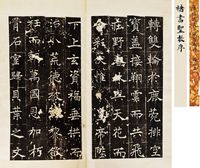 褚書聖教序
轉雙輪於鹿苑排空
寶蓋接翔雲而共飛
莊野春林與天花而
合彩伏惟皇帝陛
下上玄資福垂拱而
治八荒德被黔黎斂
衽而朝萬國恩加朽
骨石室歸貝葉之文